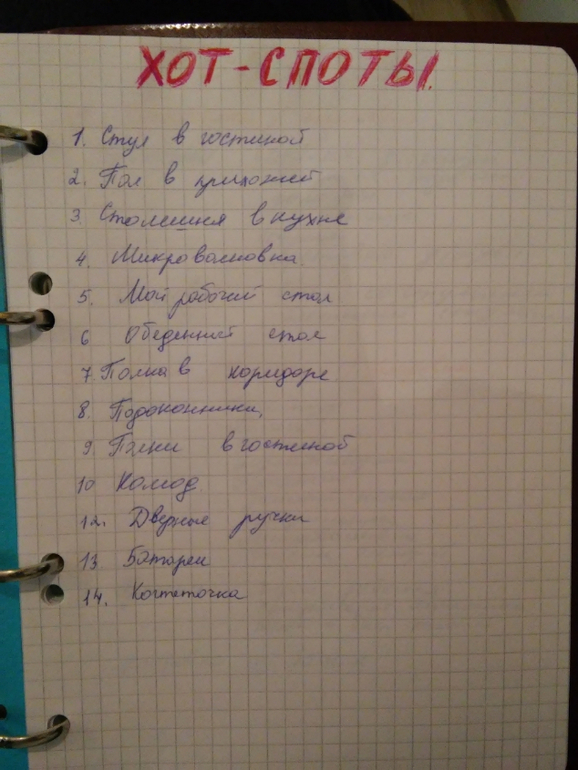 ХОТ-СПОТЫ.
1. Стул в гостиной
2. Пол в прихожей
3. Столешня в кухне
4. Микроволновка
5. Мой рабочий стол
6 Обеденный стол
7 Полка в коридоре
8. Подоконники.
9. Полки в гостиной
10 Комод
12. Дверные ручки
13. Батареи
14. Когтеточка